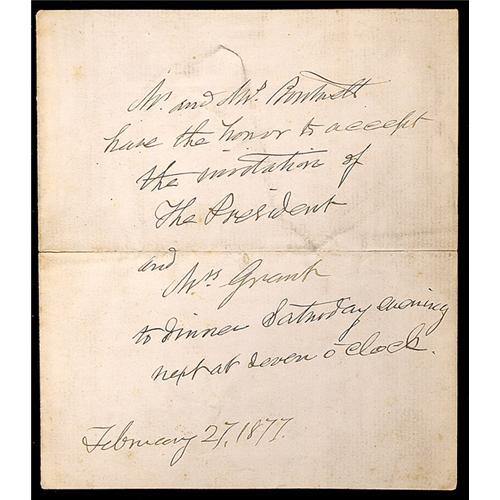 Mr. and Mrs. Boutwell
have the honor to accept
the invitation of
The President
and
Mrs Grant
to dinner Saturday evening
next at seven o'clock.
February 27, 1877.